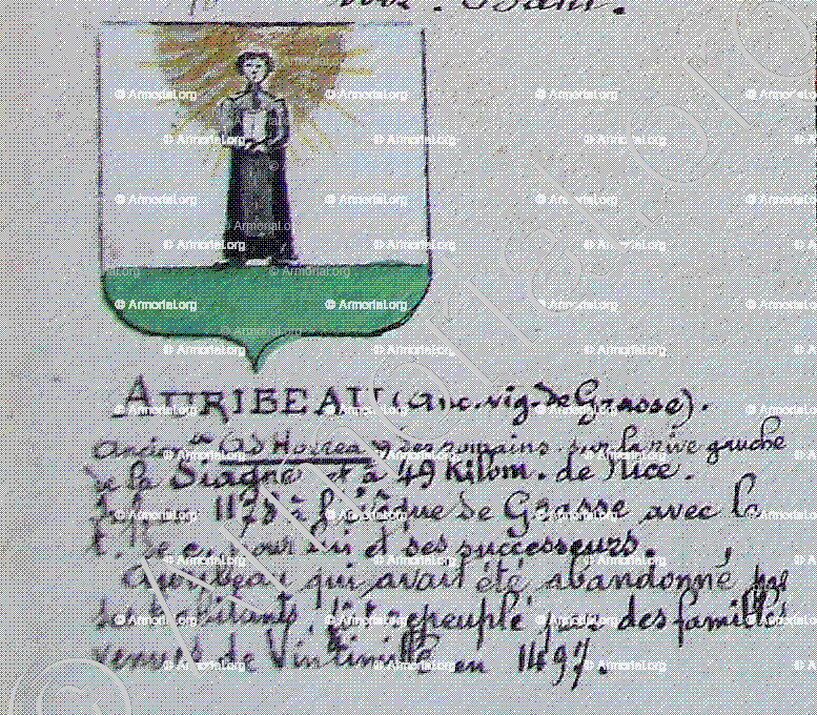 AURIBEAU (anc. vig. de Grasse).
Ancien "Ad Horrea" des romains sur la rive gauche
de la Siagne et à 49 Kilom. de Nice.
1178 à l'évêque de Grasse avec la
pour lui et ses successeurs.
Auribeau qui avait été abandonné par
ses habitants, fut repeuplé par des familles
venues de Vintimille en 1497.